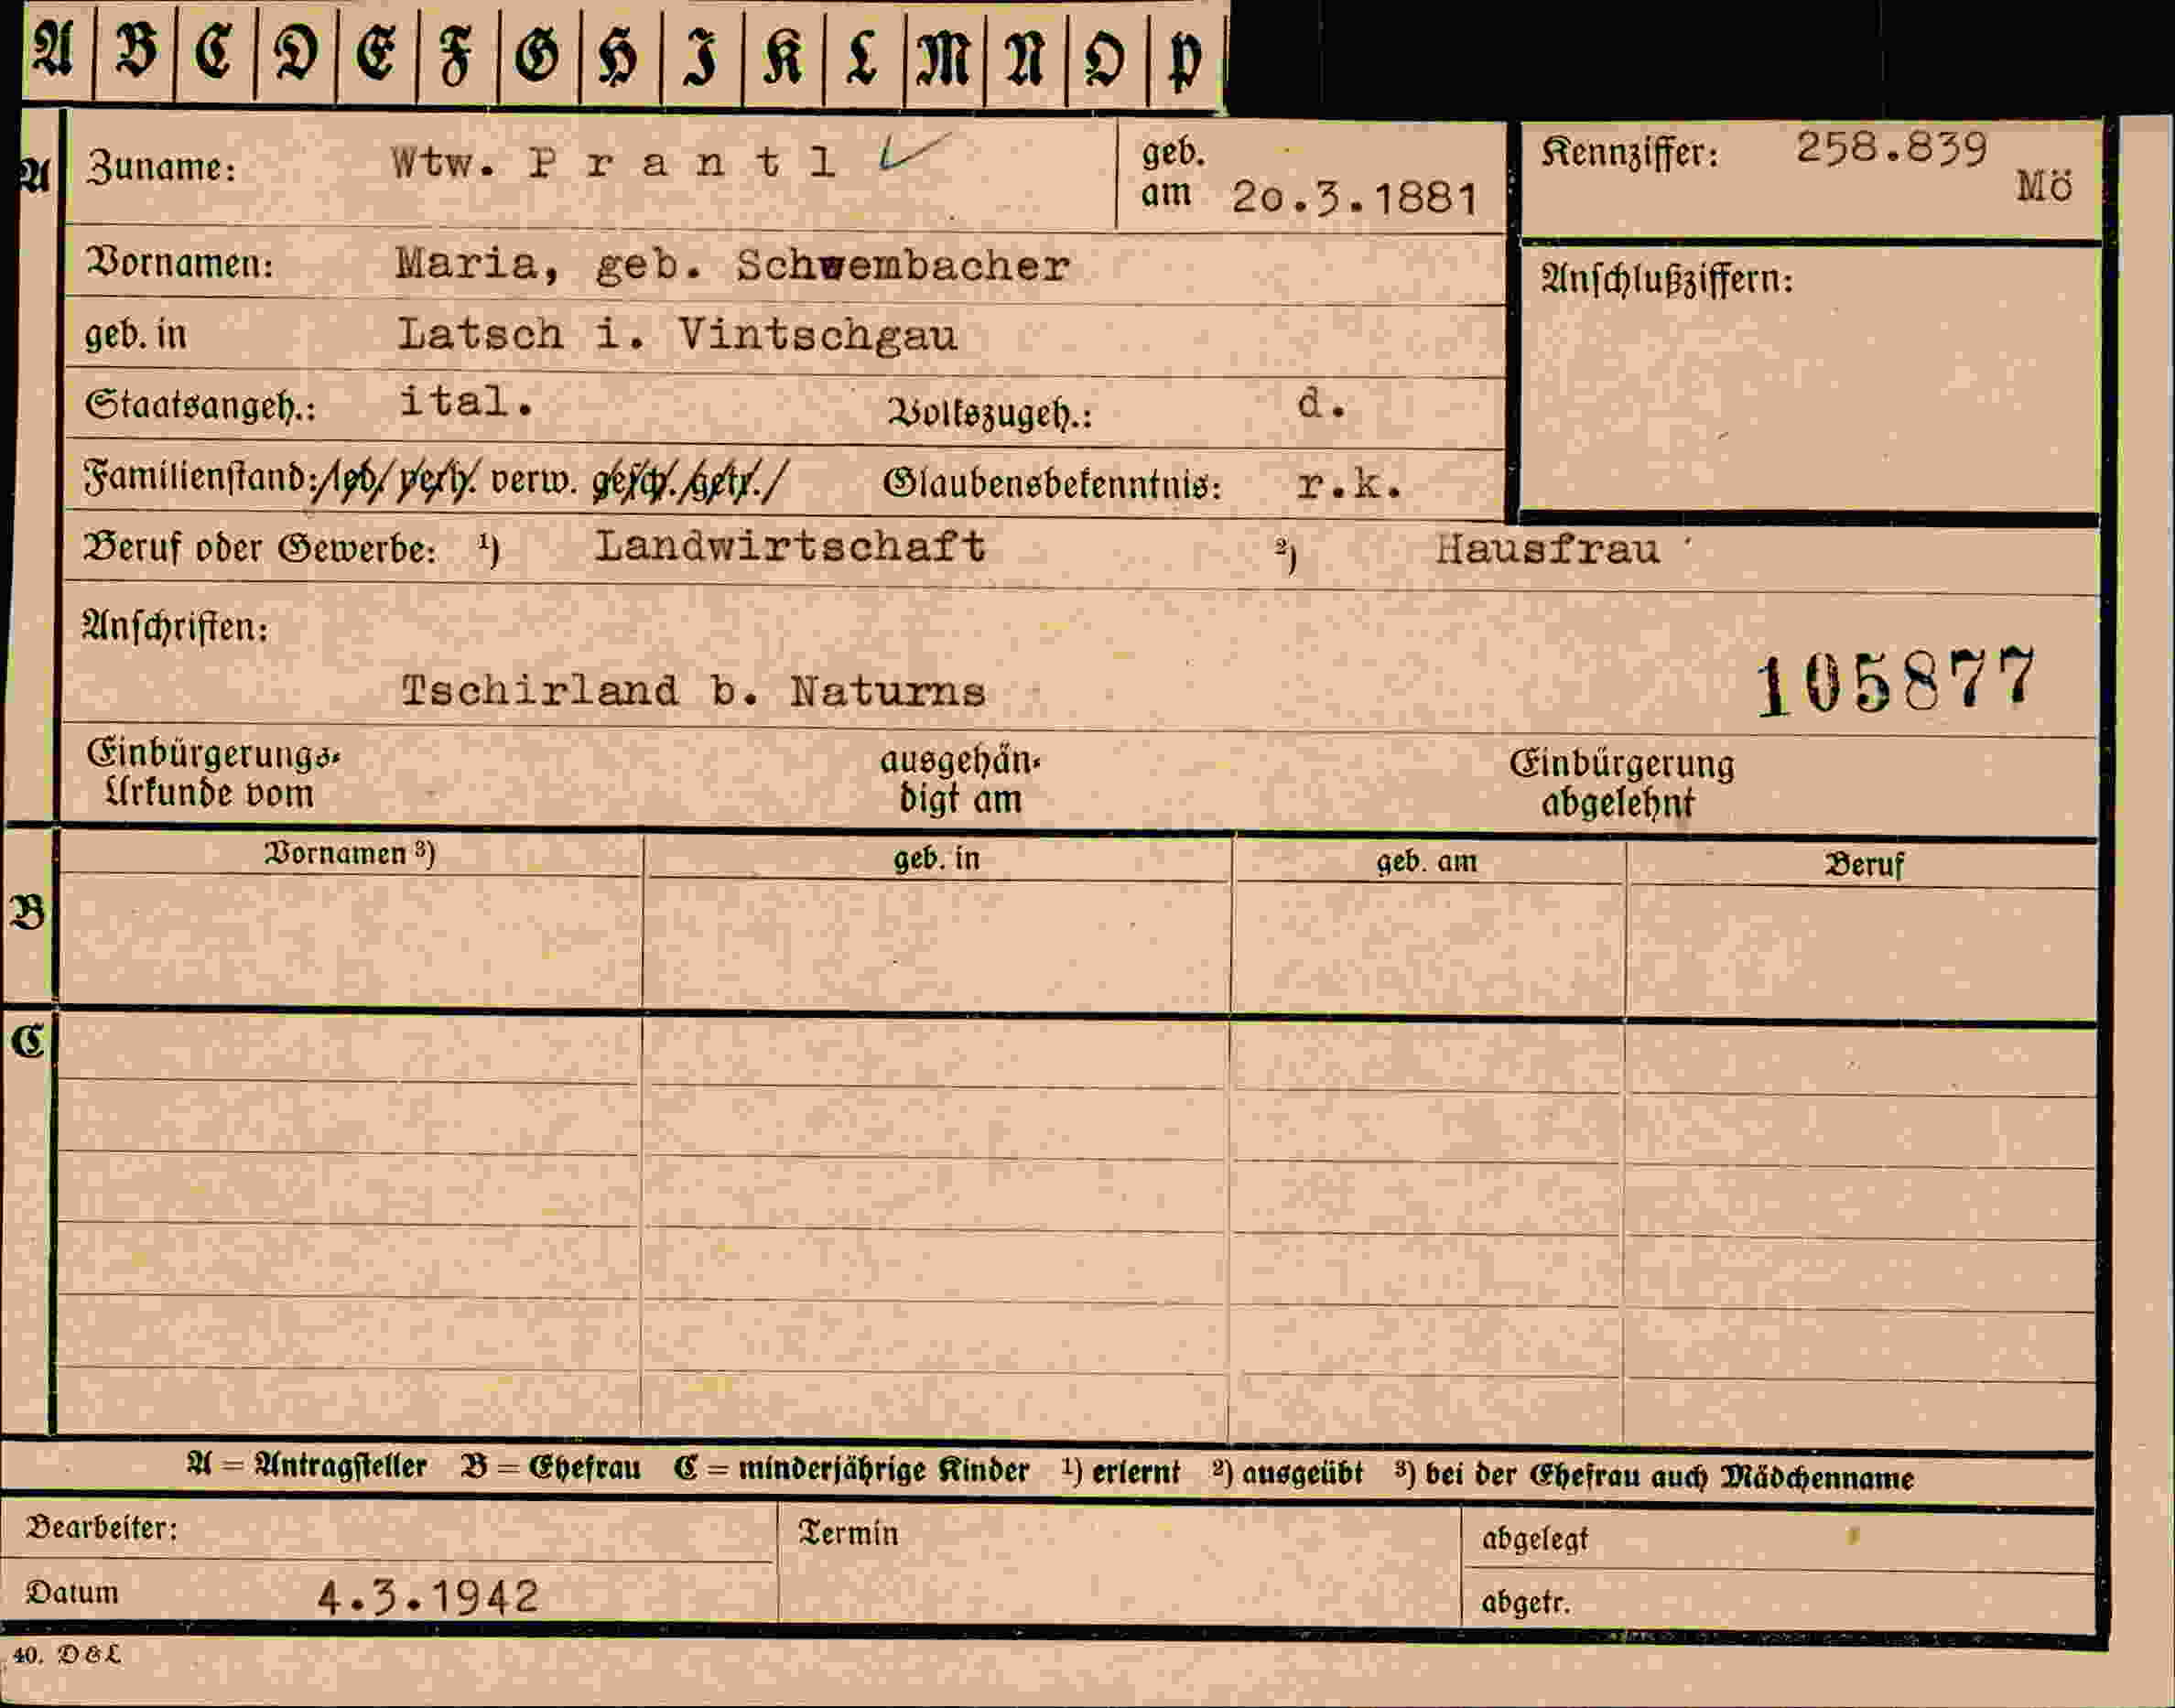 A B C D E F G H I K L M N O P
A Zuname: Wtw. P r a n t l geb. am 20.3.1881 Kennziffer: 258.839 Mö
Vornamen: Maria, geb. Schwembacher Anschlußziffern:
geb. in Latsch i. Vintschgau
Staatsangeh.: ital. Volkszugeh.: d.
Familienstand: led. verh. verw. gesch. getr. Glaubensbekenntnis: r.k.
Beruf oder Gewerbe: ¹) Landwirtschaft ²) Hausfrau
Anschriften:
Tschirland b. Naturns 105877
Einbürgerungs- ausgehän- Einbürgerung
Urkunde vom digt am abgelehnt
Vornamen ³) geb. in geb. am Beruf
B
C
A = Antragsteller B = Ehefrau C = minderjährige Kinder ¹) erlernt ²) ausgeübt ³) bei der Ehefrau auch Mädchenname
Bearbeiter: Termin abgelegt
Datum 4.3.1942 abgetr.
40. D & L